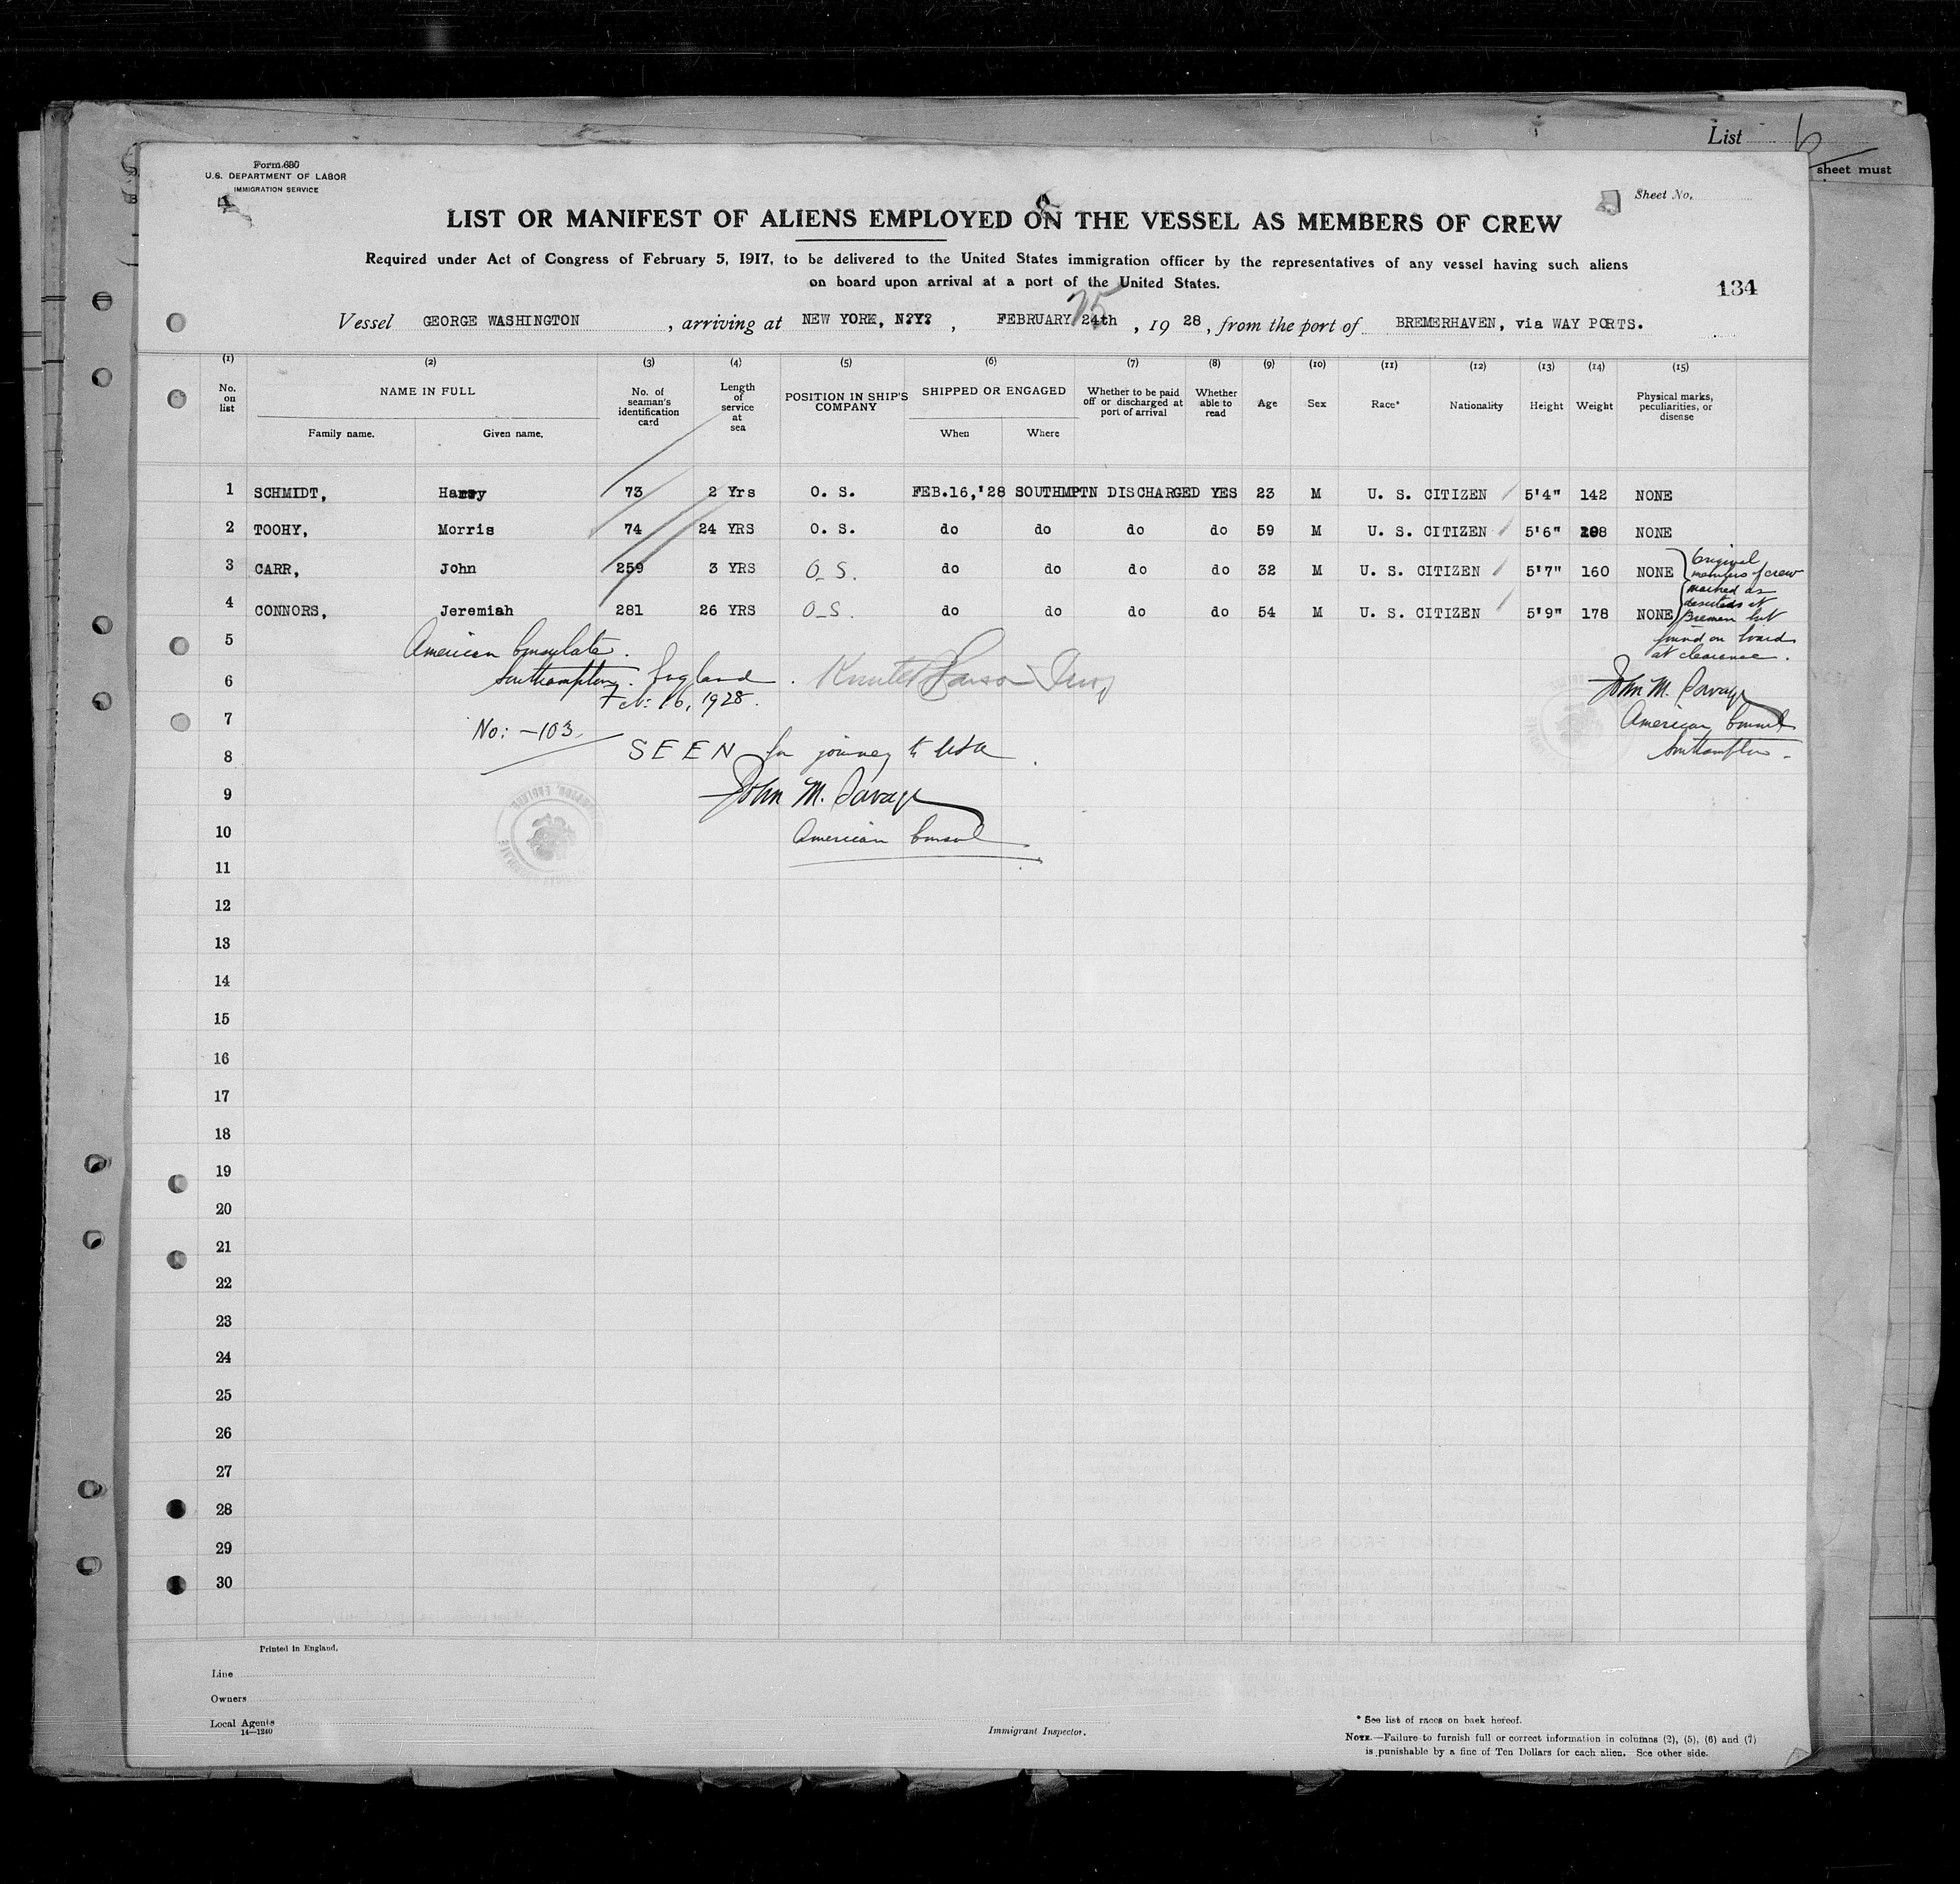 List 6
sheet must
Form 680
U.S. DEPARTMENT OF LABOR
IMMIGRATION SERVICE
Sheet No.
LIST OR MANIFEST OF ALIENS EMPLOYED ON THE VESSEL AS MEMBERS OF CREW
Required under Act of Congress of February 5, 1917, to be delivered to the United States immigration officer by the representatives of any vessel having such aliens
on board upon arrival at a port of the United States.
134
Vessel GEORGE WASHINGTON, arriving at NEW YORK, N?Y?, FEBRUARY 24th 25, 1928, from the port of BREMERHAVEN, via WAY PORTS.
(1) (2) (3) (4) (5) (6) (7) (8) (9) (10) (11) (12) (13) (14) (15)
No. on list NAME IN FULL No. of seaman's identification card Length of service at sea POSITION IN SHIP'S COMPANY SHIPPED OR ENGAGED Whether to be paid off or discharged at port of arrival Whether able to read Age Sex Race* Nationality Height Weight Physical marks, peculiarities, or disease
Family name. Given name. When Where
1 SCHMIDT, Harry 73 2 Yrs O. S. FEB.16,'28 SOUTHMPTN DISCHARGED YES 23 M U. S. CITIZEN 5'4" 142 NONE
2 TOOHY, Morris 74 24 YRS O. S. do do do do 59 M U. S. CITIZEN 5'6" 198 NONE
3 CARR, John 259 3 YRS O_S. do do do do 32 M U. S. CITIZEN 5'7" 160 NONE
4 CONNORS, Jeremiah 281 26 YRS O_S. do do do do 54 M U. S. CITIZEN 5'9" 178 NONE
Original
members of crew
marked as
deserted at
Bremen but
found on board
at clearance.
John M. Savage
American Consul
Southampton -
5
American Consulate.
Southampton. England.
6
Feb: 16, 1928.
7
No: -103.
SEEN for journey to USA.
8
John M. Savage
9
American Consul
10
11
12
13
14
15
16
17
18
19
20
21
22
23
24
25
26
27
28
29
30
Printed in England.
Line
Owners
Local Agents
14—1240
Immigrant Inspector.
* See list of races on back hereof.
NOTE.—Failure to furnish full or correct information in columns (2), (5), (6) and (7)
is punishable by a fine of Ten Dollars for each alien. See other side.